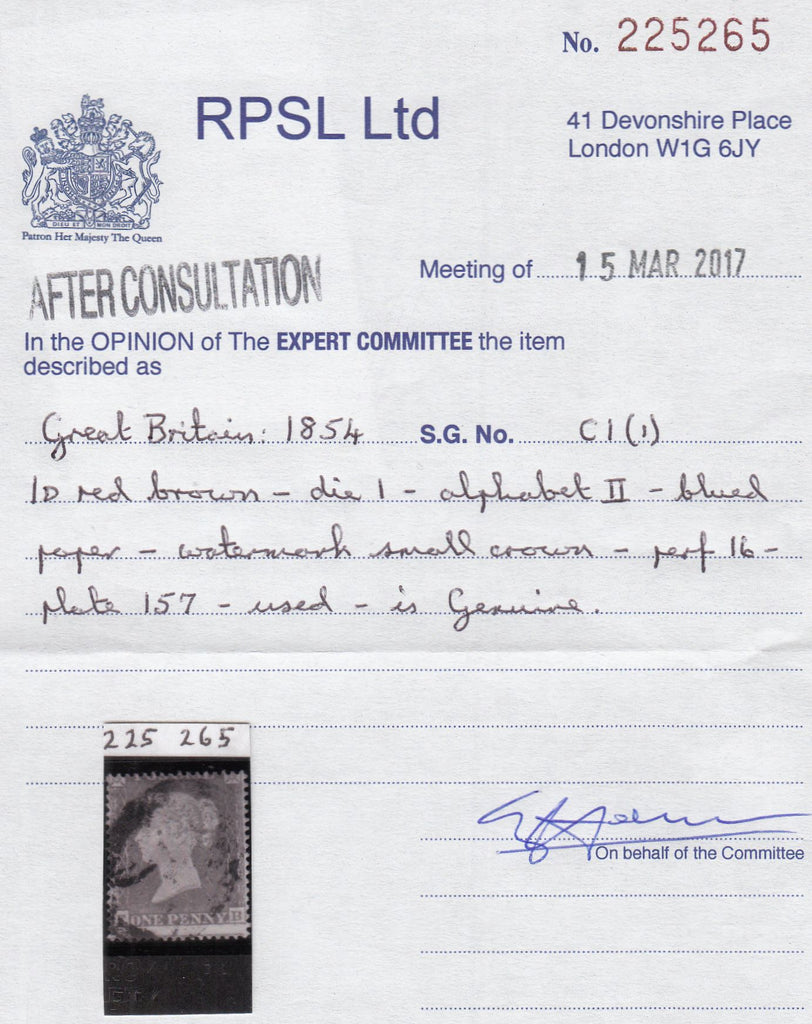 No. 225265
RPSL Ltd
41 Devonshire Place
London W1G 6JY
DIEU ET MON DROIT
Patron Her Majesty The Queen
AFTER CONSULTATION
Meeting of 15 MAR 2017
In the OPINION of The EXPERT COMMITTEE the item
described as
Great Britain: 1854 S.G. No. C1(1)
1D red brown - die 1 - alphabet II - blued
paper - watermark small crown - perf 16 -
plate 157 - used - is Genuine.
225 265
ONE PENNY B
On behalf of the Committee